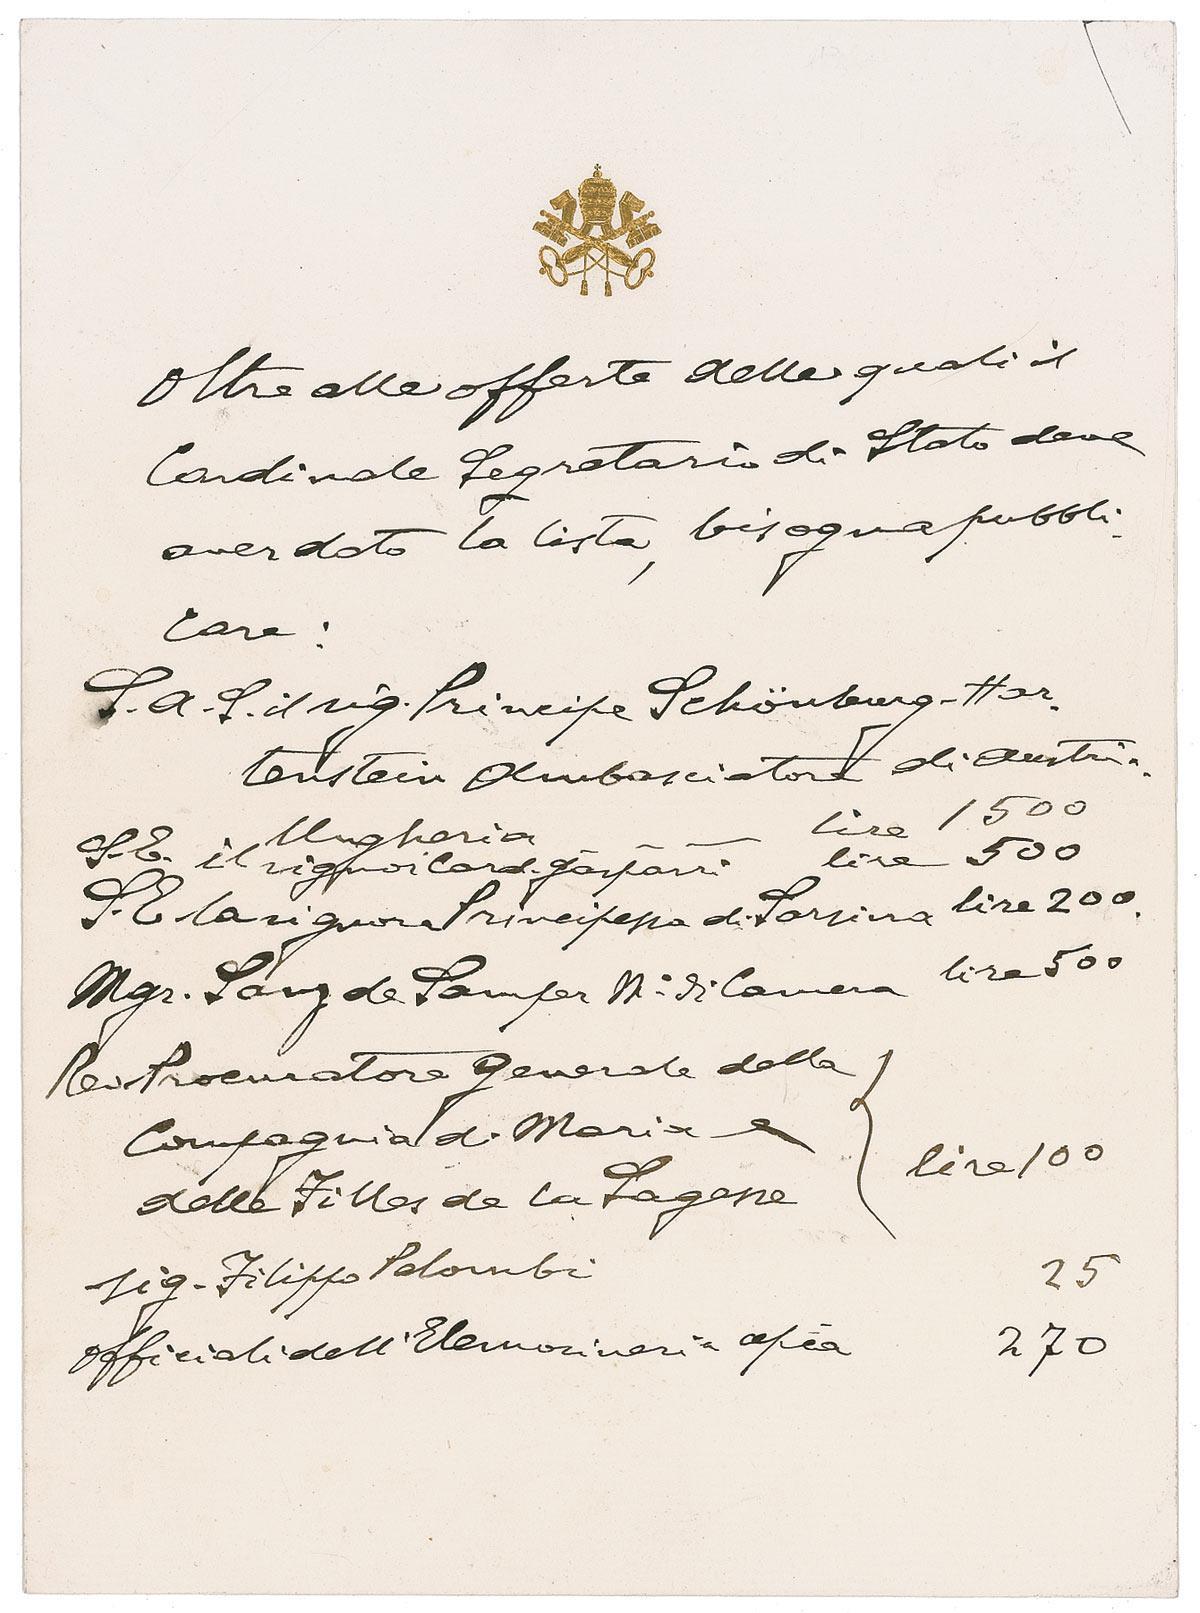 Oltre alle offerte delle quali il
Cardinale Segretario di Stato deve
aver dato la lista, bisogna pubbli-
care:
S. A. S. il sig. Principe Schönburg-Har-
tenstein Ambasciatore di Austri-
Ungheria lire 1500
S. E. il signor Card. Gasparri lire 500
S. E. la signora Principessa di Sarsina lire 200.
Mgr. Sanz de Samper M. di Camera lire 500
Rev Procuratore Generale della
Compagnia di Maria e
delle Filles de la Sagesse lire 100
sig. Filippo Palombi 25
Officiali dell'Elemosineria apca 270